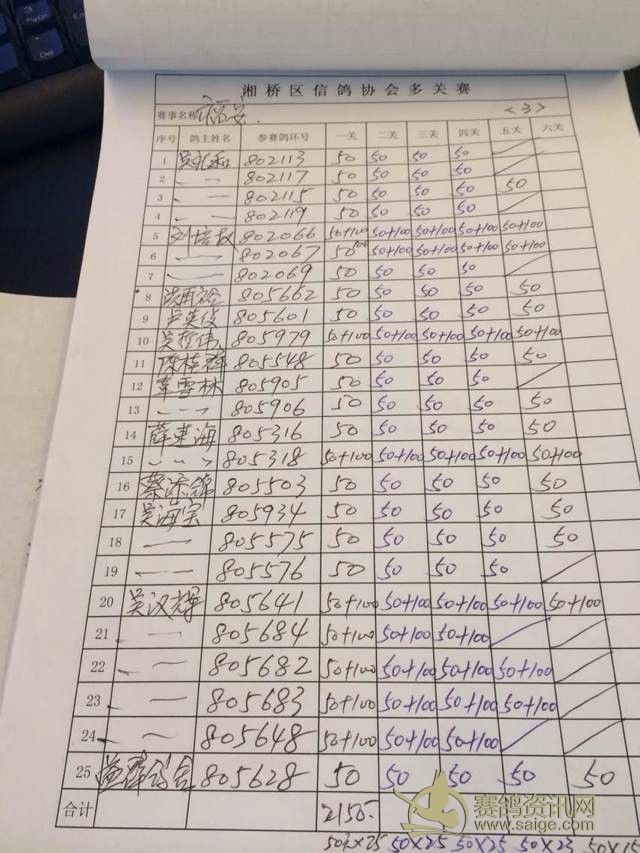 湘桥区信鸽协会多关赛
赛事名称 福安 <3>
序号 鸽主姓名 参赛鸽环号 一关 二关 三关 四关 五关 六关
1 802113 50 50 50 50
2 〃 802117 50 50 50 50
3 〃 802115 50 50 50 50 50
4 〃 802119 50 50 50 50
5 802066 50+100 50+100 50+100 50+100 50+100
6 802067 50 100 50+100 50+100 50+100 50+100
7 802069 50 50 50 50
8 805662 50 50 50 50 50
9 吴英俊 805601 50 50 50 50 50
10 吴哲伟 805979 50+100 50+100 50+100 50+100 50+100
11 陈桂群 805548 50 50 50 50 50
12 辜雪林 805905 50 50 50 50
13 805906 50 50 50 50 50
14 薛东海 805316 50 50 50 50 50
15 805318 50+100 50+100 50+100 50+100 50+100
16 蔡添锦 805503 50 50 50 50 50
17 吴海宾 805934 50 50 50 50 50
18 805575 50 50 50 50 50
19 805576 50 50 50 50
20 吴汉辉 805641 50+100 50+100 50+100 50+100 50+100
21 805684 50+100 50+100 50+100
22 805682 50+100 50+100 50+100 50+100
23 805683 50+100 50+100 50+100 50+100
24 805648 50+100 50+100 50+100
25 805628 50 50 50 50 50
合计 2150-
50X25 50X25 50X25 50X23 50X15
赛鸽资讯网
www.saige.com